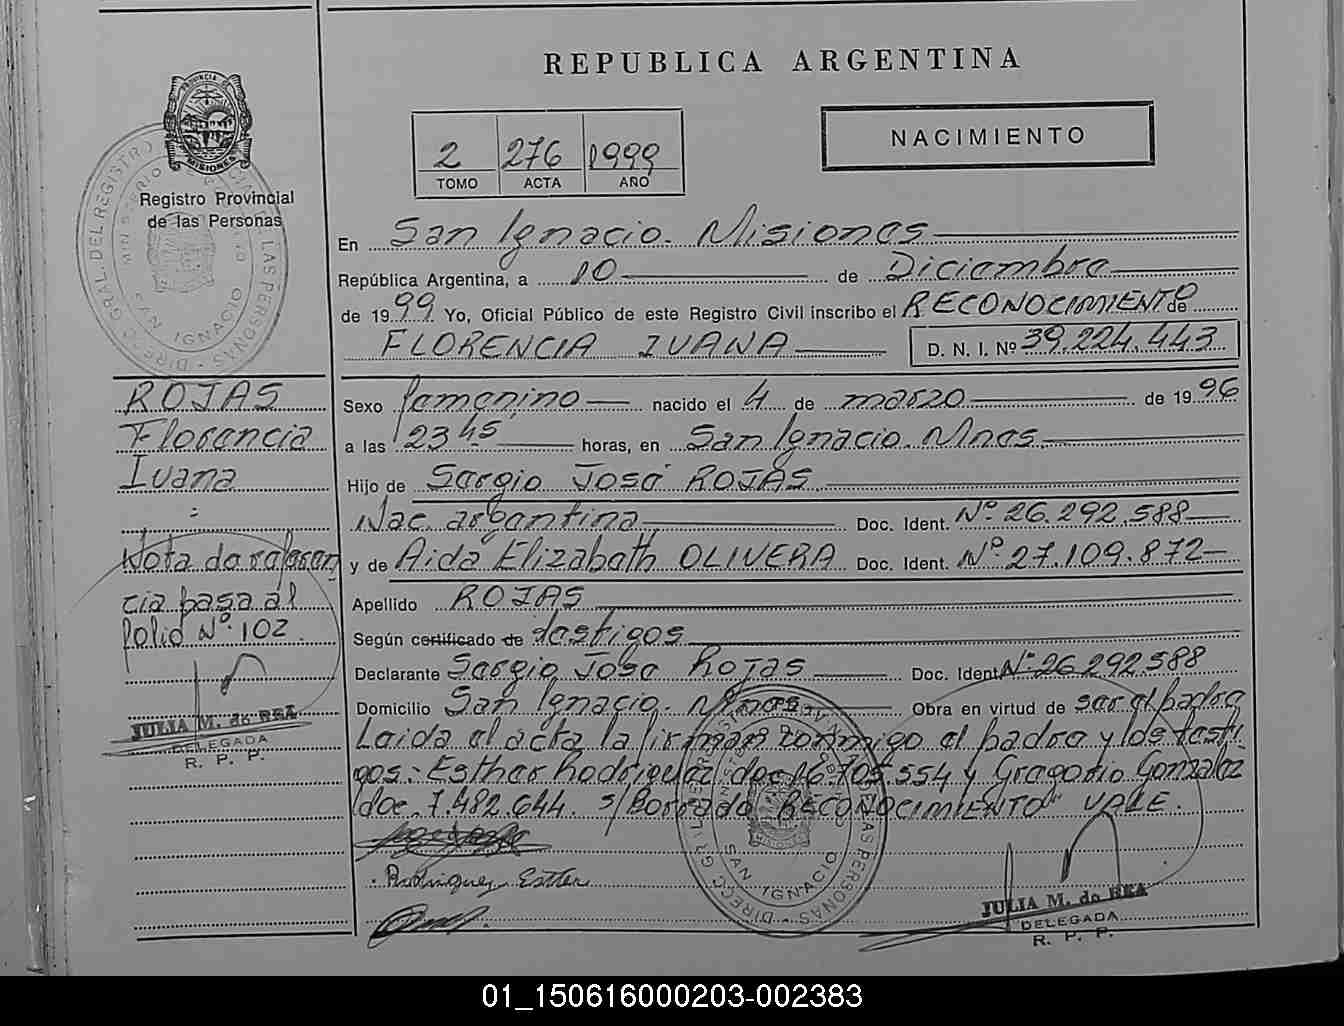 REPUBLICA ARGENTINA
NACIMIENTO
2 276 1999
TOMO ACTA AÑO
PROVINCIA DE MISIONES
Registro Provincial
de las Personas
En San Ignacio. Misiones
República Argentina, a 10 de Diciembre
de 1999 Yo, Oficial Público de este Registro Civil inscribo el RECONOCIMIENTO de
FLORENCIA IVANA D. N. I. Nº 39.224.443
ROJAS
Florencia
Ivana
Nota de referen
cia pasa al
folio Nº. 102.
JULIA M. de REA
DELEGADA
R. P. P.
Sexo femenino nacido el 4 de marzo de 1996
a las 23 45 horas, en San Ignacio. Mnes.
Hijo de Sergio José ROJAS.
Nac. argentina Doc. Ident. Nº. 26.292.588
y de Aida Elizabeth OLIVERA Doc. Ident. Nº. 27.109.872
Apellido ROJAS
Según certificado de testigos
Declarante Sergio José Rojas Doc. Ident Nº 26.292.588
Domicilio San Ignacio. Mnes. Obra en virtud de ser el padre
Leida el acta la firman conmigo el padre y los testi
gos: Esther Rodriguez doc 16.705.554 y Gregorio Gonzalez
doc. 7.482.644. s/Borrado RECONOCIMIENTO" VALE.
Rodriguez Esther
SAN IGNACIO
JULIA M. de REA
DELEGADA
R. P. P.
01_150616000203-002383